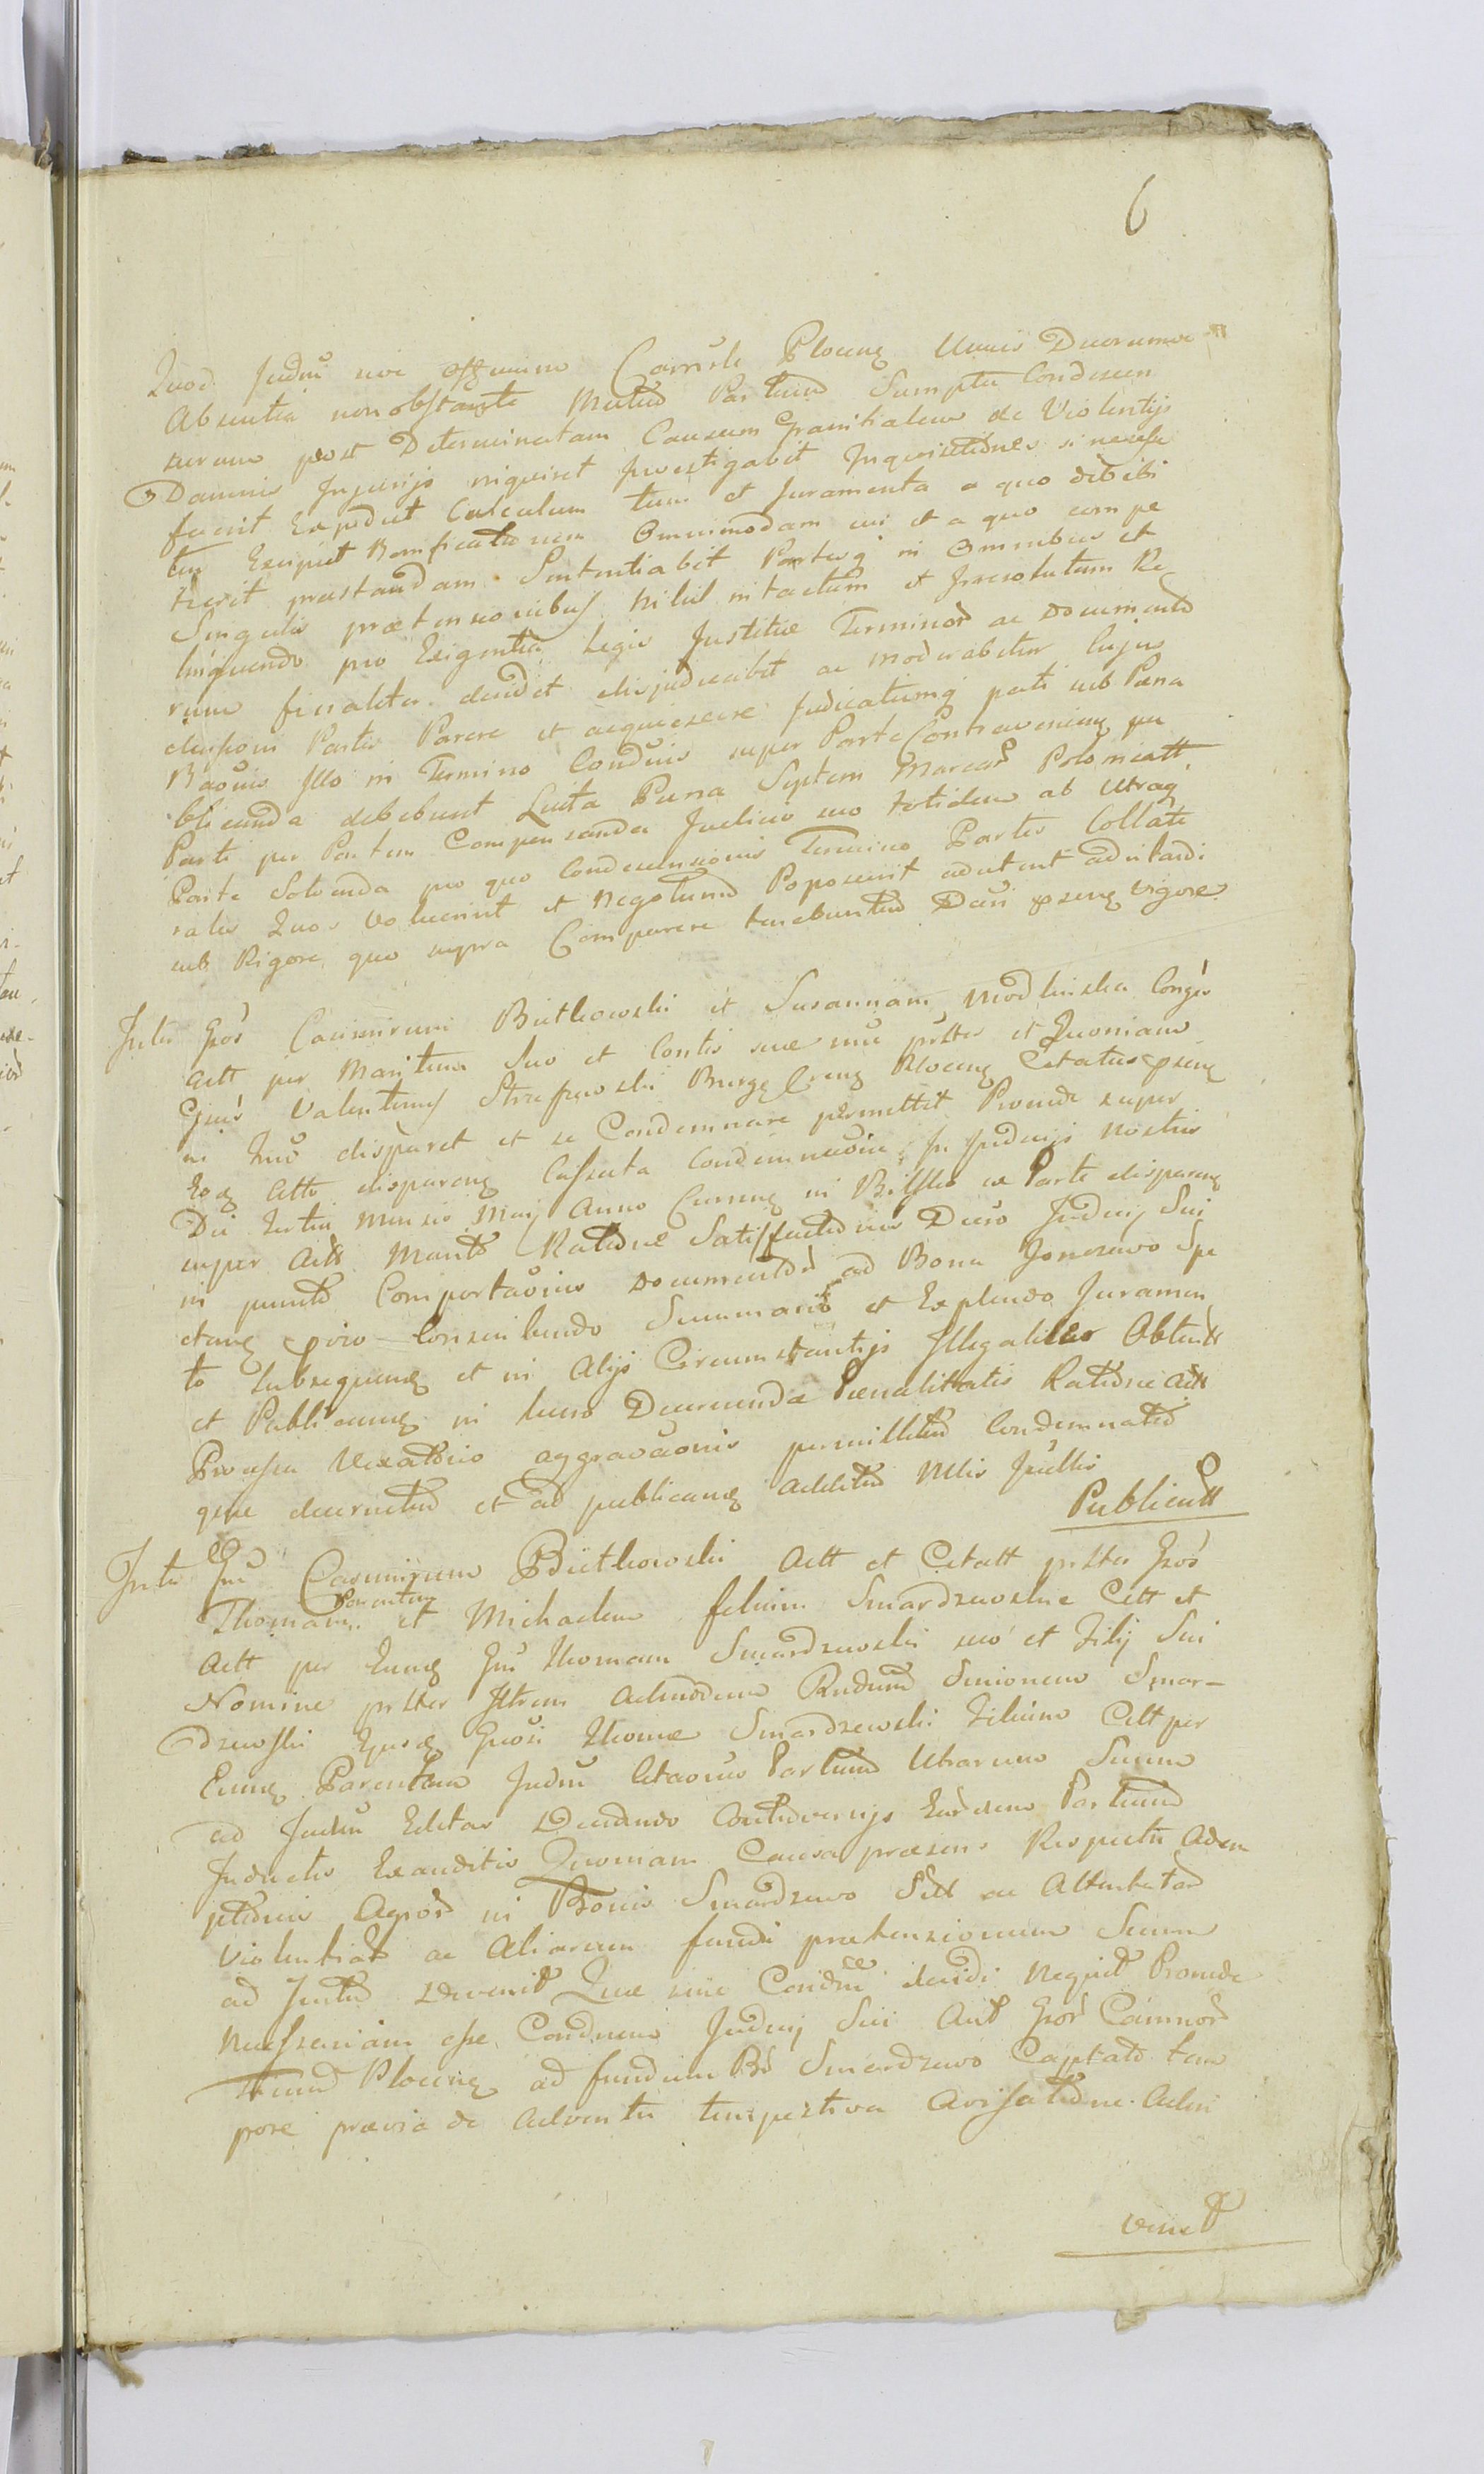 6
Quod Judm sive Camrle Plocen Unius Duorumve
Absentia non obstante Mutuo Partium Sumptu Condescen
surum post Determinatam Causam Granitialem de Violentijs
Damnis Injurijs inquiret Investigabit Inquisitiones si necesse
fuerit Expediet Calculum tum et Juramenta a quo debebi
tur Excipiet Bonificationem Omnimodam cui et a quo compe
tierit praestandam Sententiabit Partesq in Omnibus et
Singulis praetensionibus nihil intactum et Irresolutum Re
linquendo pro Exigentia Legis Justitiae Terminor ac Documento
rum finaliter decidet disjudicabit ac moderabitur Cujus
decisioni Partes Parere et acquiescere Judicatumq pati sub Paena
Baõnis Illo in Termino Condnis super Parte Contraveniens pu
blicanda debebunt Luita Paena Septem Marcar Polonicatt
Parti per Partem Compensanda Judicio suo totidem ab Utraq
Parte Solvenda pro quo Condescensionis Termino Partes Collate
rales Quos Voluerint et Negotium Poposcerit adcitent adcitandi
sub Rigore quo supra Comparere tenebuntur Dcti pseng Vigore
Inter Gsos Casimirum Bietkowski et Susannam Modlinska Conges
Actt per Maritum Suo et Contis suae nne prstes et Quoniam
Gsus Valentinus Burg Plocen Citatus pseng
in Judo disparet et se Condemnare permittit Proinde super
Eoq Citto disparen Cassata Condemnaõne In Judicijs Nostris
Die Tertia Mensis Maij Anno Curren in Bielsko ex Parte disparen
super Actt Marito Ratione Satisfactionis Decro Judicij Sui
in puncto Comportaõnis Documentor ad Bona Jonczewo Spe
ctang pvio Conscribendo Summario et Explendo Juramen
to Subsequeng et in Alijs Circumstantijs Illegaliter Obtent
et Publicang in lucro Decernenda Paenalitatis Ratione Actt
Processu Vexatorio aggravaõnis permittitur Condemnatio
que decernitur et ad publicang additur Mlis Jrellis
Publicatt
Inter Gsm Casimirum Bietkowski Actt et Citatt prstes Gsos
Thomam Parentem et Michaelem filium Smardzewskie Citt et
Actt per Eung Gsm Thomam Smardzewski suo et Filij Sui
Nomine prster Illrem Admodum Rndum Simonem Smar-
dzewski Ejusq Gnosi Thomae Smardzewski Filium Citt per
Eung Parentem Judm Citaõnes Partium Utrarum Suum
ad Judm Editas Decidendo Controversijs Earum Partium
Inductis Exauditis Quoniam Causa praesens Respectu Adem
ptionis Agror in Bonis Smardzewo Sitt ac Attentator
Violentiar ac Aliarum fundi praetensionum Suum
ad Justm Devenit Quae sine Condne decidi Nequit Proinde
Necessariam esse Condnem Judicij Sui Aut Gsor Camnor
strium Plocen ad fundum Br Smardzewo Captato tem
pore praevia de Adventu tempestiva Avisatione Adin
veniet